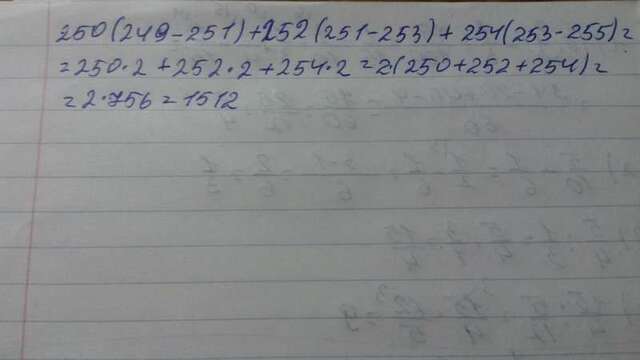 250(249-251)+252(251-253)+254(253-255)=
=250·2+252·2+254·2=2(250+252+254)=
=2·756=1512